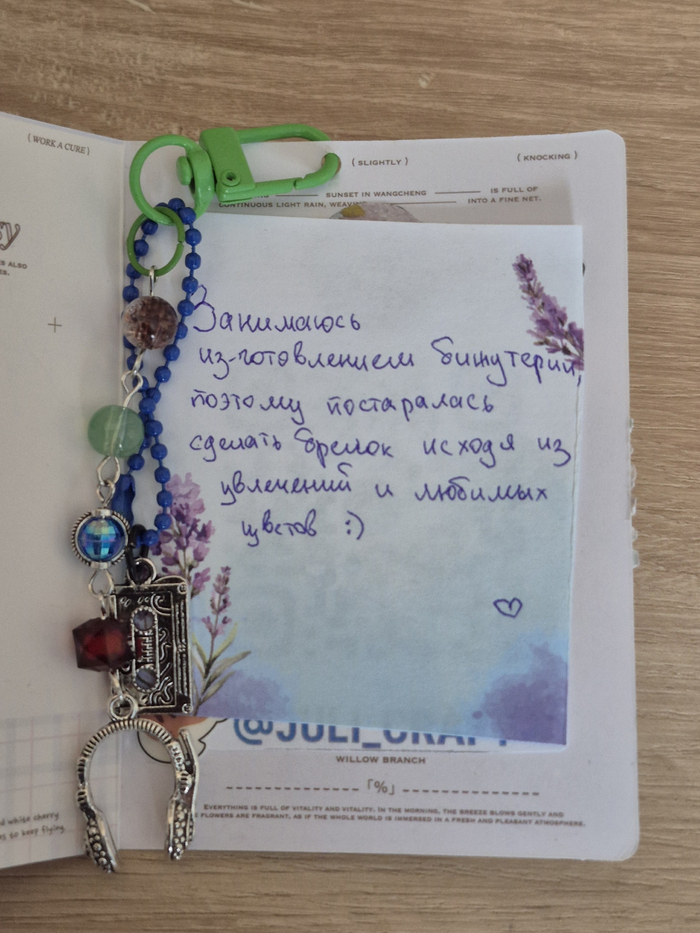 ( WORK A CURE )
( SLIGHTLY )
( KNOCKING )
SUNSET IN WANGCHENG
IS FULL OF
CONTINUOUS LIGHT RAIN,
INTO A FINE NET.
Занимаюсь
из-готовлением бижутерии,
поэтому постаралась
сделать брелок исходя из
увлечений и любимых
цветов :)
@JULI_CRAFT
WILLOW BRANCH
「%」
EVERYTHING IS FULL OF VITALITY AND VITALITY. IN THE MORNING, THE BREEZE BLOWS GENTLY AND
FLOWERS ARE FRAGRANT, AS IF THE WHOLE WORLD IS IMMERSED IN A FRESH AND PLEASANT ATMOSPHERE.
white cherry
to keep flying.